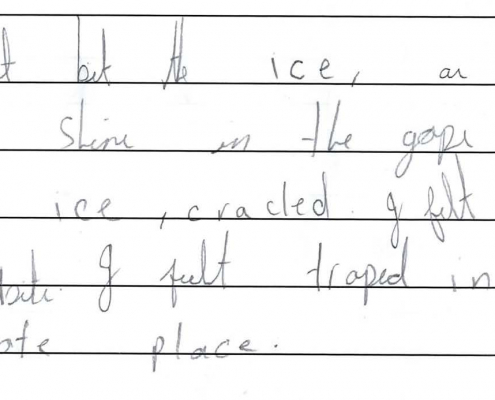 t but the ice, an
Shine in the gaps
ice, cracled. I felt
bite. I fult traped in
ate place.